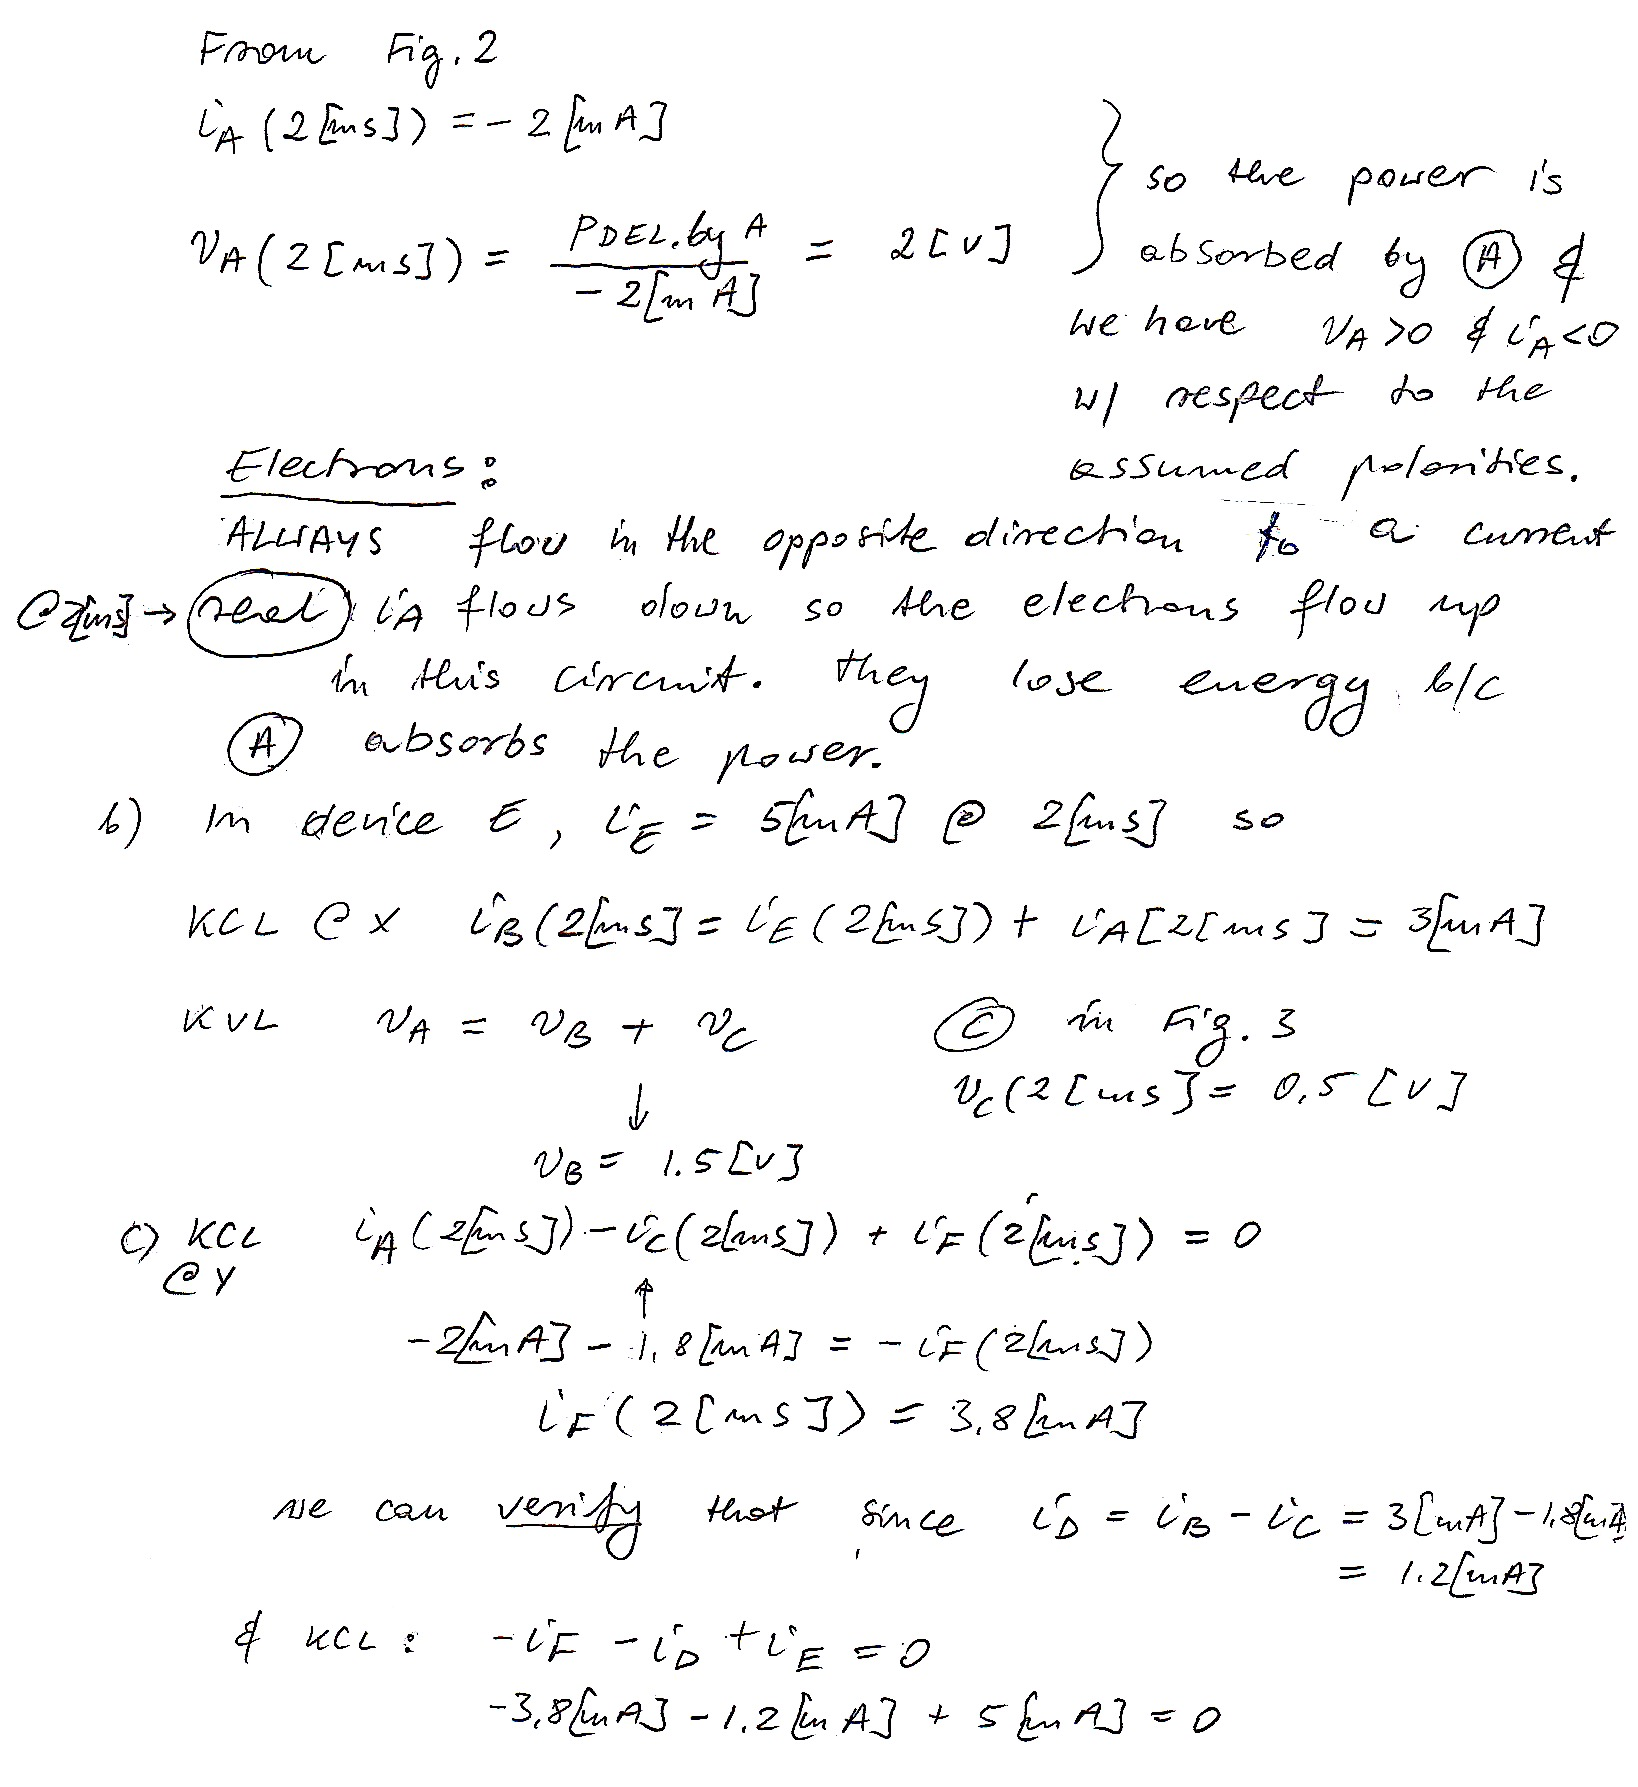 From Fig. 2
iA (2[ms]) = - 2 [mA]
vA (2[ms]) = PDEL. by A / - 2[mA] = 2[V]
} so the power is
absorbed by Ⓐ &
we have vA >0 & iA <0
w/ respect to the
assumed polarities.
Electrons:
ALWAYS flow in the opposite direction to a current
@ 2[ms] → real iA flows down so the electrons flow up
in this circuit. They lose energy b/c
Ⓐ absorbs the power.
b) In device E, iE = 5[mA] @ 2[ms] so
KCL @ X iB(2[ms] = iE(2[ms]) + iA[2[ms] = 3[mA]
KVL vA = vB + vC Ⓒ in Fig. 3
↓ vC(2[ms] = 0.5 [V]
vB = 1.5 [V]
c) KCL iA(2[ms]) - iC(2[ms]) + iF(2[ms]) = 0
@ Y ↑
-2[mA] - 1.8[mA] = - iF(2[ms])
iF(2[ms]) = 3.8[mA]
we can verify that since iD = iB - iC = 3[mA] - 1.8[mA
= 1.2[mA]
& KCL: -iF - iD + iE = 0
-3.8[mA] - 1.2[mA] + 5[mA] = 0